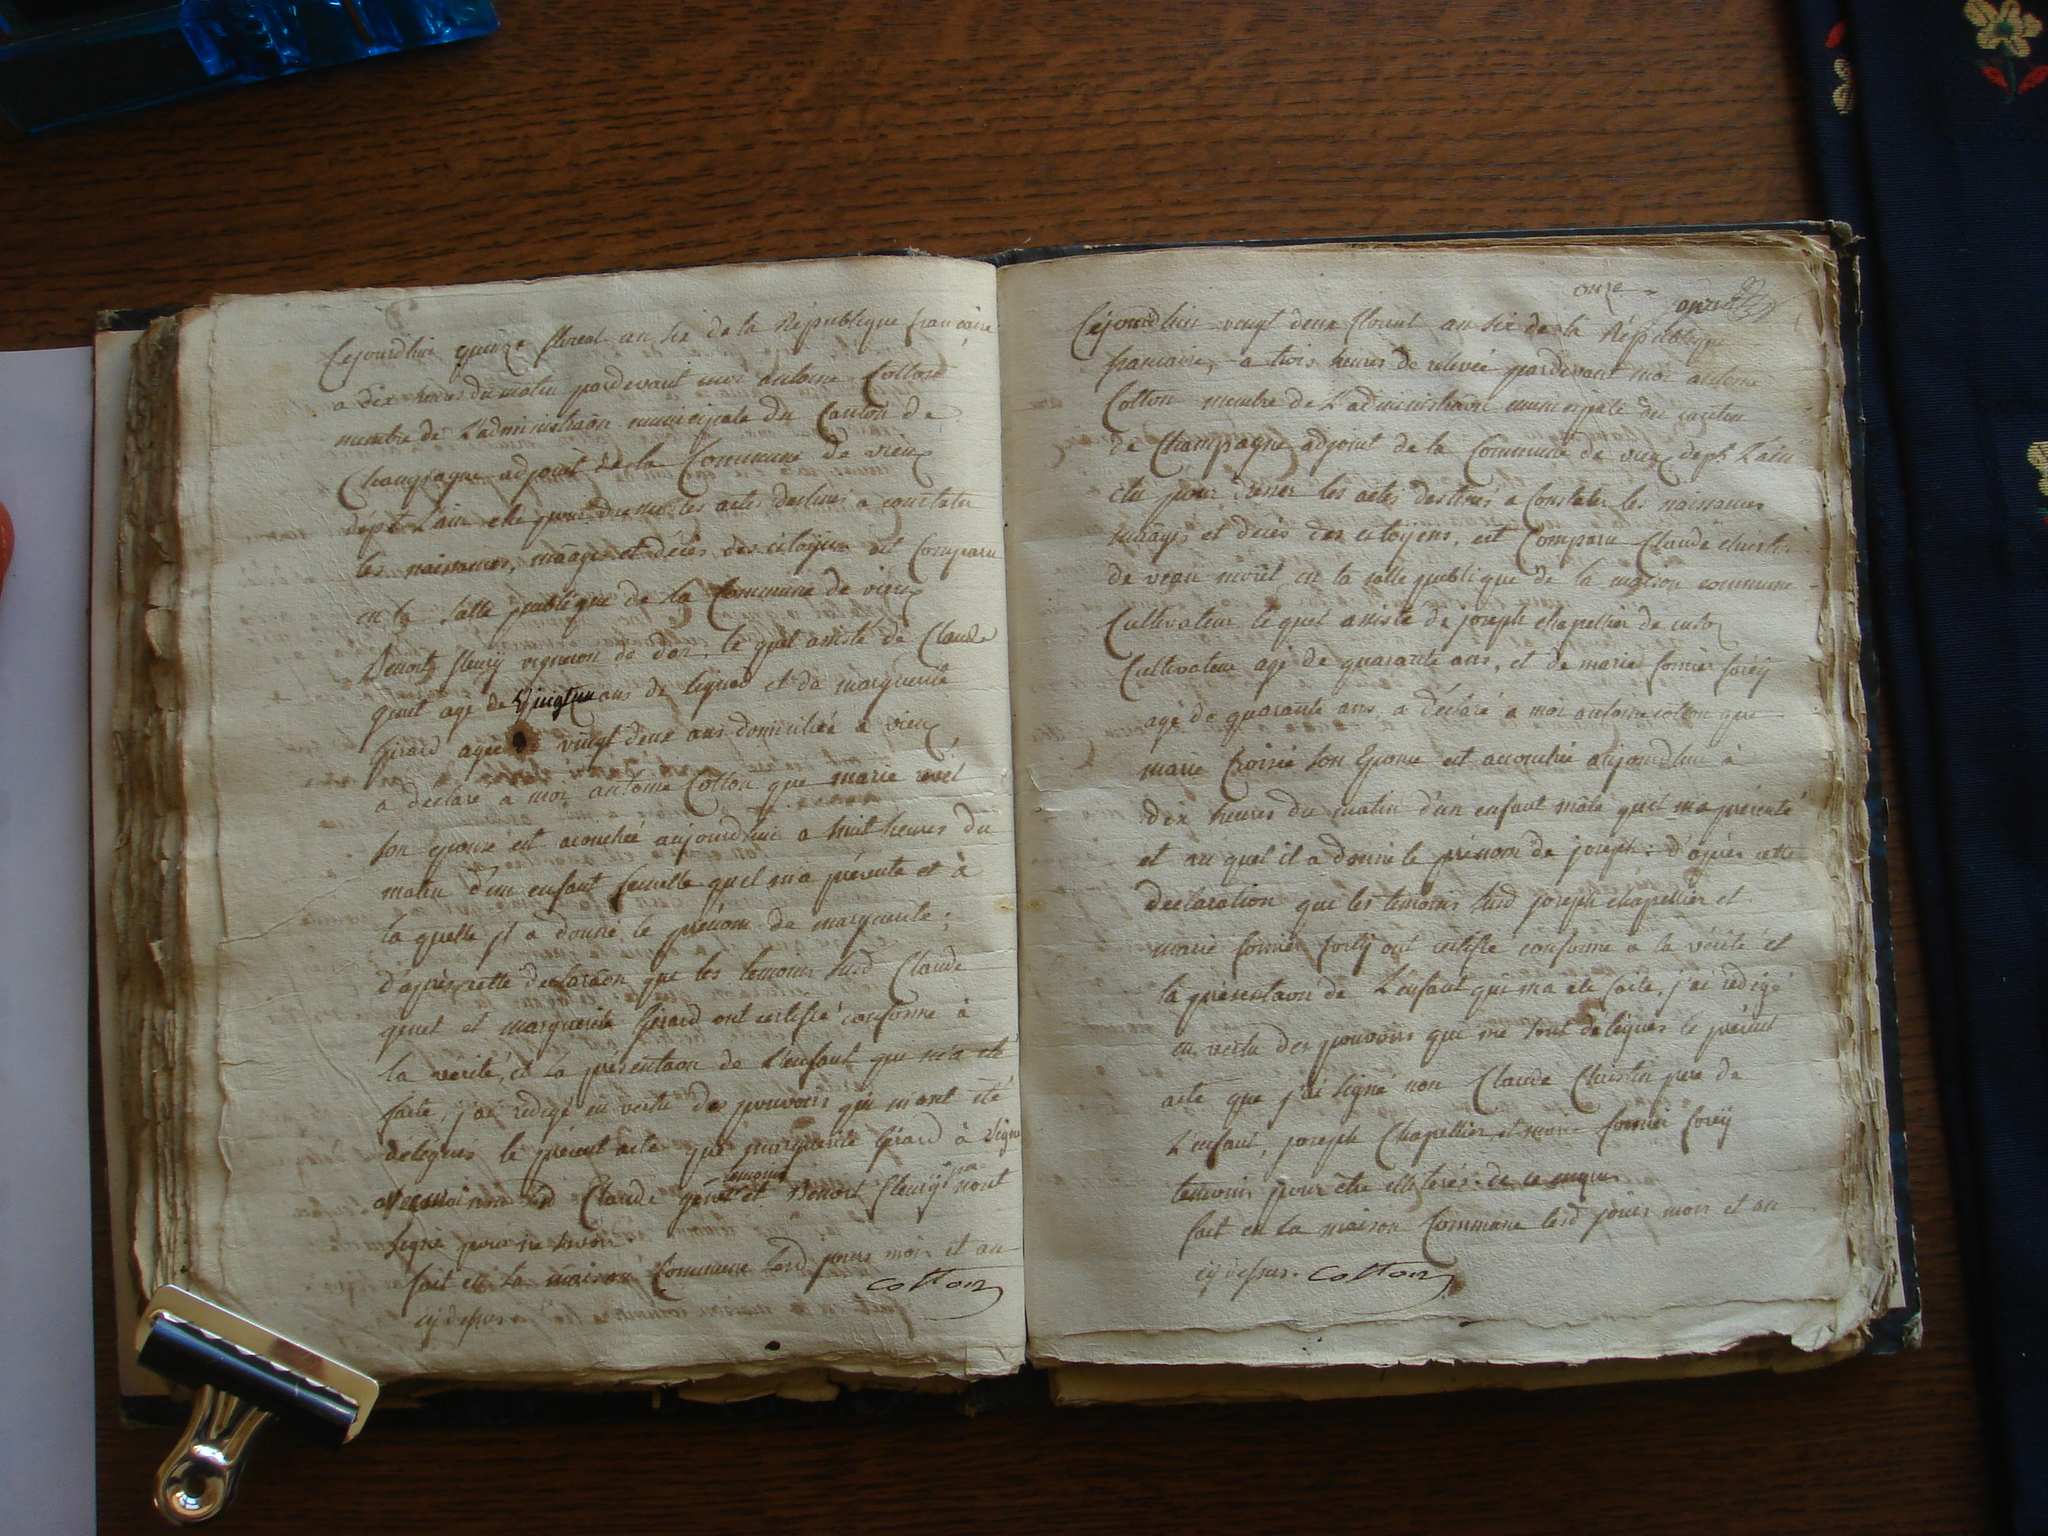 Cejourdhui quinze floreal an six de la République françoise
a dix heures du matin pardevant moi antoine Cotton
membre de L'administraõn municipale du Canton de
Champagne adjoint de la Commune de vieux
dépt L'ain elu pour dresser les actes destinés a constater
les naissances, mãages et décès des citoÿens est Comparu
en la Salle publique de la Commune de vieux
Benoit fleury vigneron de don, le quel assisté de Claude
quet agé de vingt un ans de lignod et de marguerite
Girard agée vingt deux ans domiciliée a vieux
a déclaré a moi antoine Cotton que marie revel
son épouse est acouchée aujourdhui a huit heures du
matin d'un enfant femelle quil m'a présenté et à
la quelle jl a donné le prénom de marguerite;
d'après cette declaraõn que les temoins susd Claude
quet et marguerite Girard ont certifié conforme à
la vérité, et la présentaõn de L'enfant qui m'a été
faite, j'ai redigé en vertu des pouvoirs qui m'ont été
délégués le présent acte que marguerite Girard à signé
avec moi non Claude quet temoins et Benoit fleury pa n'ont
signé pour ne savoir
fait en la maison Commune lesd jours mois et an
cÿ dessus
Cotton
onze
onze
Cejourdhui vingt deux floreal an six de la République
francaise, a trois heures de relevée pardevant moi antoine
Cotton membre de L'administraõn municipale du canton
de Champagne adjoint de la Commune de vieux dépt L'ain
elu pour dresser les actes destinés a Constater les naissances
mãages et décès des citoÿens, est Comparu Claude christin
de en la salle publique de la maison commune
Cultivateur le quel assisté de joseph chapellier de
Cultivateur agé de quarante ans, et de marie fornier forëÿ
agé de quarante ans, a déclaré a moi antoine cotton que
marie son Epouse est acouchée aujourdhui à
dix heures du matin d'un enfant mâle quil m'a présenté
et au quel il a donné le prénom de joseph: d'après cette
declaration que les temoins susd joseph chapellier et
marie fornier forëÿ ont certifié conforme a la vérité et
la présentaõn de L'enfant qui m'a été faite, j'ai redigé
en vertu des pouvoirs qui me sont délégués le présent
acte que j'ai signé non Claude Christin pere de
L'enfant, joseph Chapellier, et marie fornier forëÿ
temoins pour être de ce
fait en la maison Commune lesd jours mois et an
cÿ dessus. Cotton